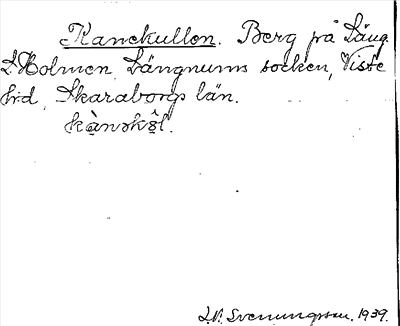 Kanekullen. Berg på Läng
Holmen Längnums socken, Viste
hrd, Skaraborgs län.
Svenungsson. 1939.